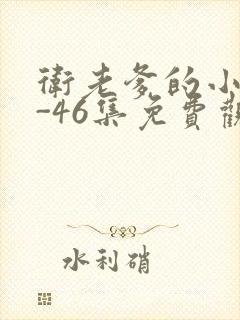 衛老爹的小
-46集免費觀
水利硝